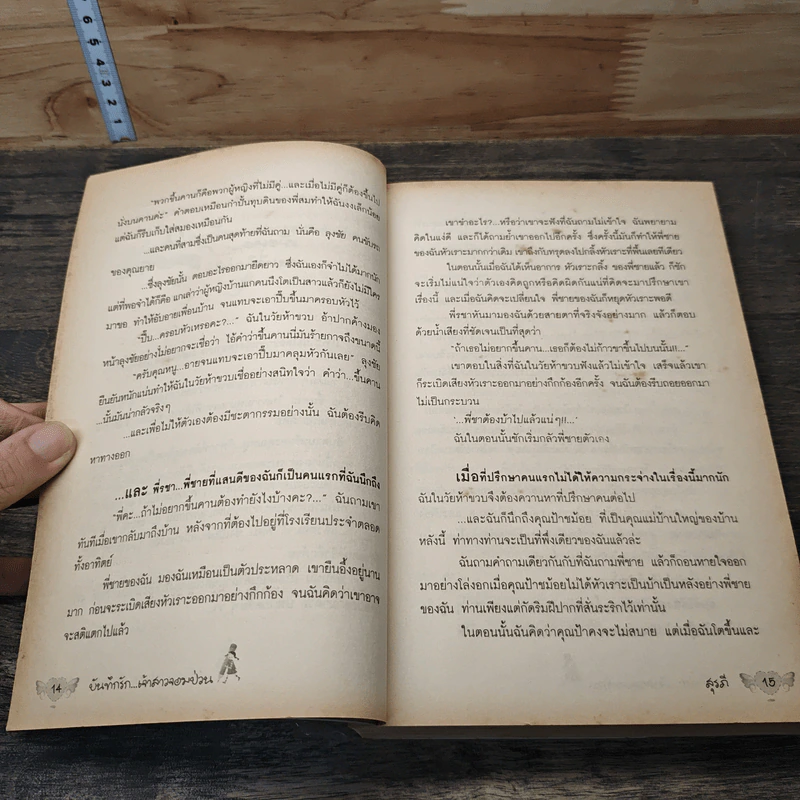 6 5 4 3 2 1
"พวกขึ้นคานก็คือพวกผู้หญิงที่ไม่มีคู่...และเมื่อไม่มีคู่ก็ต้องขึ้นไป
นั่งบนคานค่ะ" คำตอบเหมือนกำปั้นทุบดินของพี่สมทำให้ฉันงงเล็กน้อย
แต่ฉันก็รีบเก็บใส่สมองเหมือนกัน
...และคนที่สามซึ่งเป็นคนสุดท้ายที่ฉันถาม นั่นคือ ลุงชัย คนขับรถ
ของคุณยาย
...ซึ่งลุงชัยนั้น ตอบอะไรออกมายืดยาว ซึ่งฉันเองก็จำไม่ได้มากนัก
แต่ที่พอจำได้ก็คือ แกเล่าว่าผู้หญิงบ้านแกคนนึงโตเป็นสาวแล้วก็ยังไม่มีใคร
มาขอ ทำให้อับอายเพื่อนบ้าน จนแทบจะเอาปี๊บขึ้นมาครอบหัวไว้
"ปี๊บ...ครอบหัวเหรอคะ?..." ฉันในวัยห้าขวบ อ้าปากค้างมอง
หน้าลุงชัยอย่างไม่อยากจะเชื่อว่า ไอ้คำว่าขึ้นคานนี่มันร้ายกาจถึงขนาดนี้
"ครับคุณหนู...อายจนแทบจะเอาปี๊บมาคลุมหัวกันเลย" ลุงชัย
ยืนยันหนักแน่นทำให้ฉันในวัยห้าขวบเชื่ออย่างสนิทใจว่า คำว่า...ขึ้นคาน
...นั้นมันน่ากลัวจริงๆ
...และเพื่อไม่ให้ตัวเองต้องมีชะตากรรมอย่างนั้น ฉันต้องรีบคิด
หาทางออก
...และ พี่รชา...พี่ชายที่แสนดีของฉันก็เป็นคนแรกที่ฉันนึกถึง
"พี่คะ...ถ้าไม่อยากขึ้นคานต้องทำยังไงบ้างคะ?..." ฉันถามเขา
ทันทีเมื่อเขากลับมาถึงบ้าน หลังจากที่ต้องไปอยู่ที่โรงเรียนประจำตลอด
ทั้งอาทิตย์
พี่ชายของฉัน มองฉันเหมือนเป็นตัวประหลาด เขายืนอึ้งอยู่นาน
มาก ก่อนจะระเบิดเสียงหัวเราะออกมาอย่างกึกก้อง จนฉันคิดว่าเขาอาจ
จะสติแตกไปแล้ว
14 บันทึกรัก...เจ้าสาวจอมป่วน
เขาขำอะไร?...หรือว่าเขาจะฟังที่ฉันถามไม่เข้าใจ ฉันพยายาม
คิดในแง่ดี และก็ได้ถามย้ำเขาออกไปอีกครั้ง ซึ่งครั้งนี้มันก็ทำให้พี่ชาย
ของฉันหัวเราะมากกว่าเดิม เขาถึงกับทรุดลงไปกลิ้งหัวเราะที่พื้นเลยทีเดียว
ในตอนนั้นเมื่อฉันได้เห็นอาการ หัวเราะกลิ้ง ของพี่ชายแล้ว ก็ชัก
จะเริ่มไม่แน่ใจว่าตัวเองคิดถูกหรือคิดผิดกันแน่ที่คิดจะมาปรึกษาเขา
เรื่องนี้ และเมื่อฉันคิดจะเปลี่ยนใจ พี่ชายของฉันก็หยุดหัวเราะพอดี
พี่รชาหันมามองฉันด้วยสายตาที่จริงจังอย่างมาก แล้วก็ตอบ
ด้วยน้ำเสียงที่ชัดเจนเป็นที่สุดว่า
"ถ้าเธอไม่อยากขึ้นคาน...เธอก็ต้องไม่ก้าวขาขึ้นไปบนนั้น!!..."
เขาตอบในสิ่งที่ฉันในวัยห้าขวบฟังแล้วไม่เข้าใจ เสร็จแล้วเขา
ก็ระเบิดเสียงหัวเราะออกมาอย่างกึกก้องอีกครั้ง จนฉันต้องรีบถอยออกมา
ไม่เป็นกระบวน
'...พี่ชาต้องบ้าไปแล้วแน่ๆ!!...'
ฉันในตอนนั้นชักเริ่มกลัวพี่ชายตัวเอง
เมื่อที่ปรึกษาคนแรกไม่ได้ให้ความกระจ่างในเรื่องนี้มากนัก
ฉันในวัยห้าขวบจึงต้องความหาที่ปรึกษาคนต่อไป
...และฉันก็นึกถึงคุณป้าชม้อย ที่เป็นคุณแม่บ้านใหญ่ของบ้าน
หลังนี้ ท่าทางท่านจะเป็นที่พึ่งเดียวของฉันแล้วล่ะ
ฉันถามคำถามเดียวกันกับที่ฉันถามพี่ชาย แล้วก็ถอนหายใจออก
มาอย่างโล่งอกเมื่อคุณป้าชม้อยไม่ได้หัวเราะเป็นบ้าเป็นหลังอย่างพี่ชาย
ของฉัน ท่านเพียงแต่กัดริมฝีปากที่สั่นระริกไว้เท่านั้น
ในตอนนั้นฉันคิดว่าคุณป้าคงจะไม่สบาย แต่เมื่อฉันโตขึ้นและ
สุรภี 15